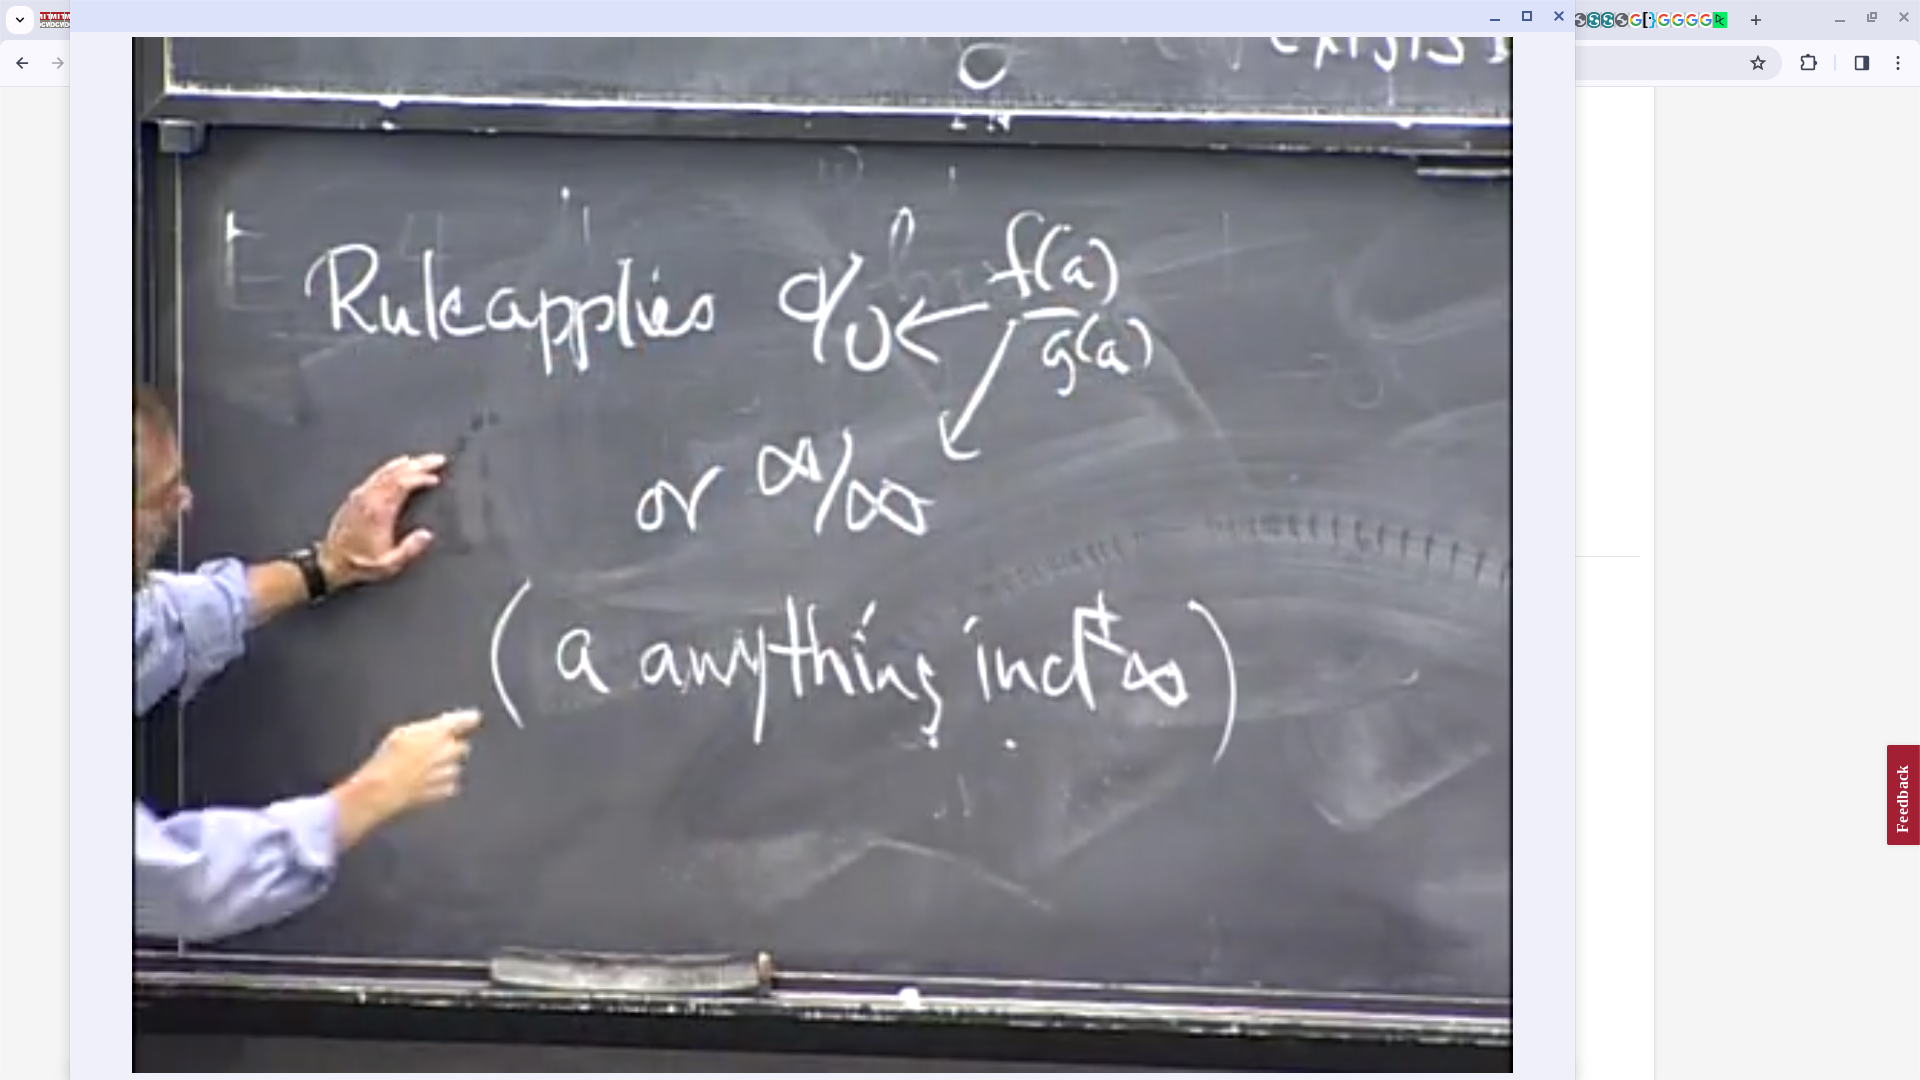 exists
Rule applies 0/0 ← f(a)/g(a)
or ∞/∞
(a anything incl ±∞)
Feedback